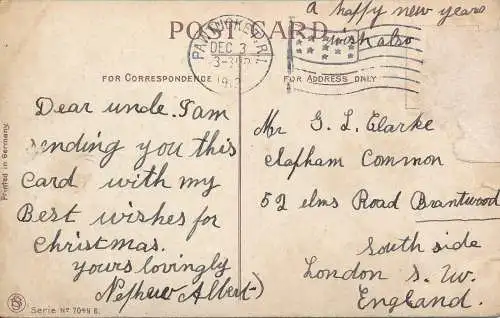 a happy new years
wish also
POST CARD
PAWTUCKET, R.I.
DEC 3
3-30P
191
FOR CORRESPONDENCE
FOR ADDRESS ONLY
Dear uncle. I am
sending you this
card with my
Best wishes for
Christmas.
yours lovingly
Nephew Albert)
Mr G. L. Clarke
Clapham Common
52 elms Road Brantwood
South side
London S. W.
England.
Printed in Germany
Serie No 7049 B.